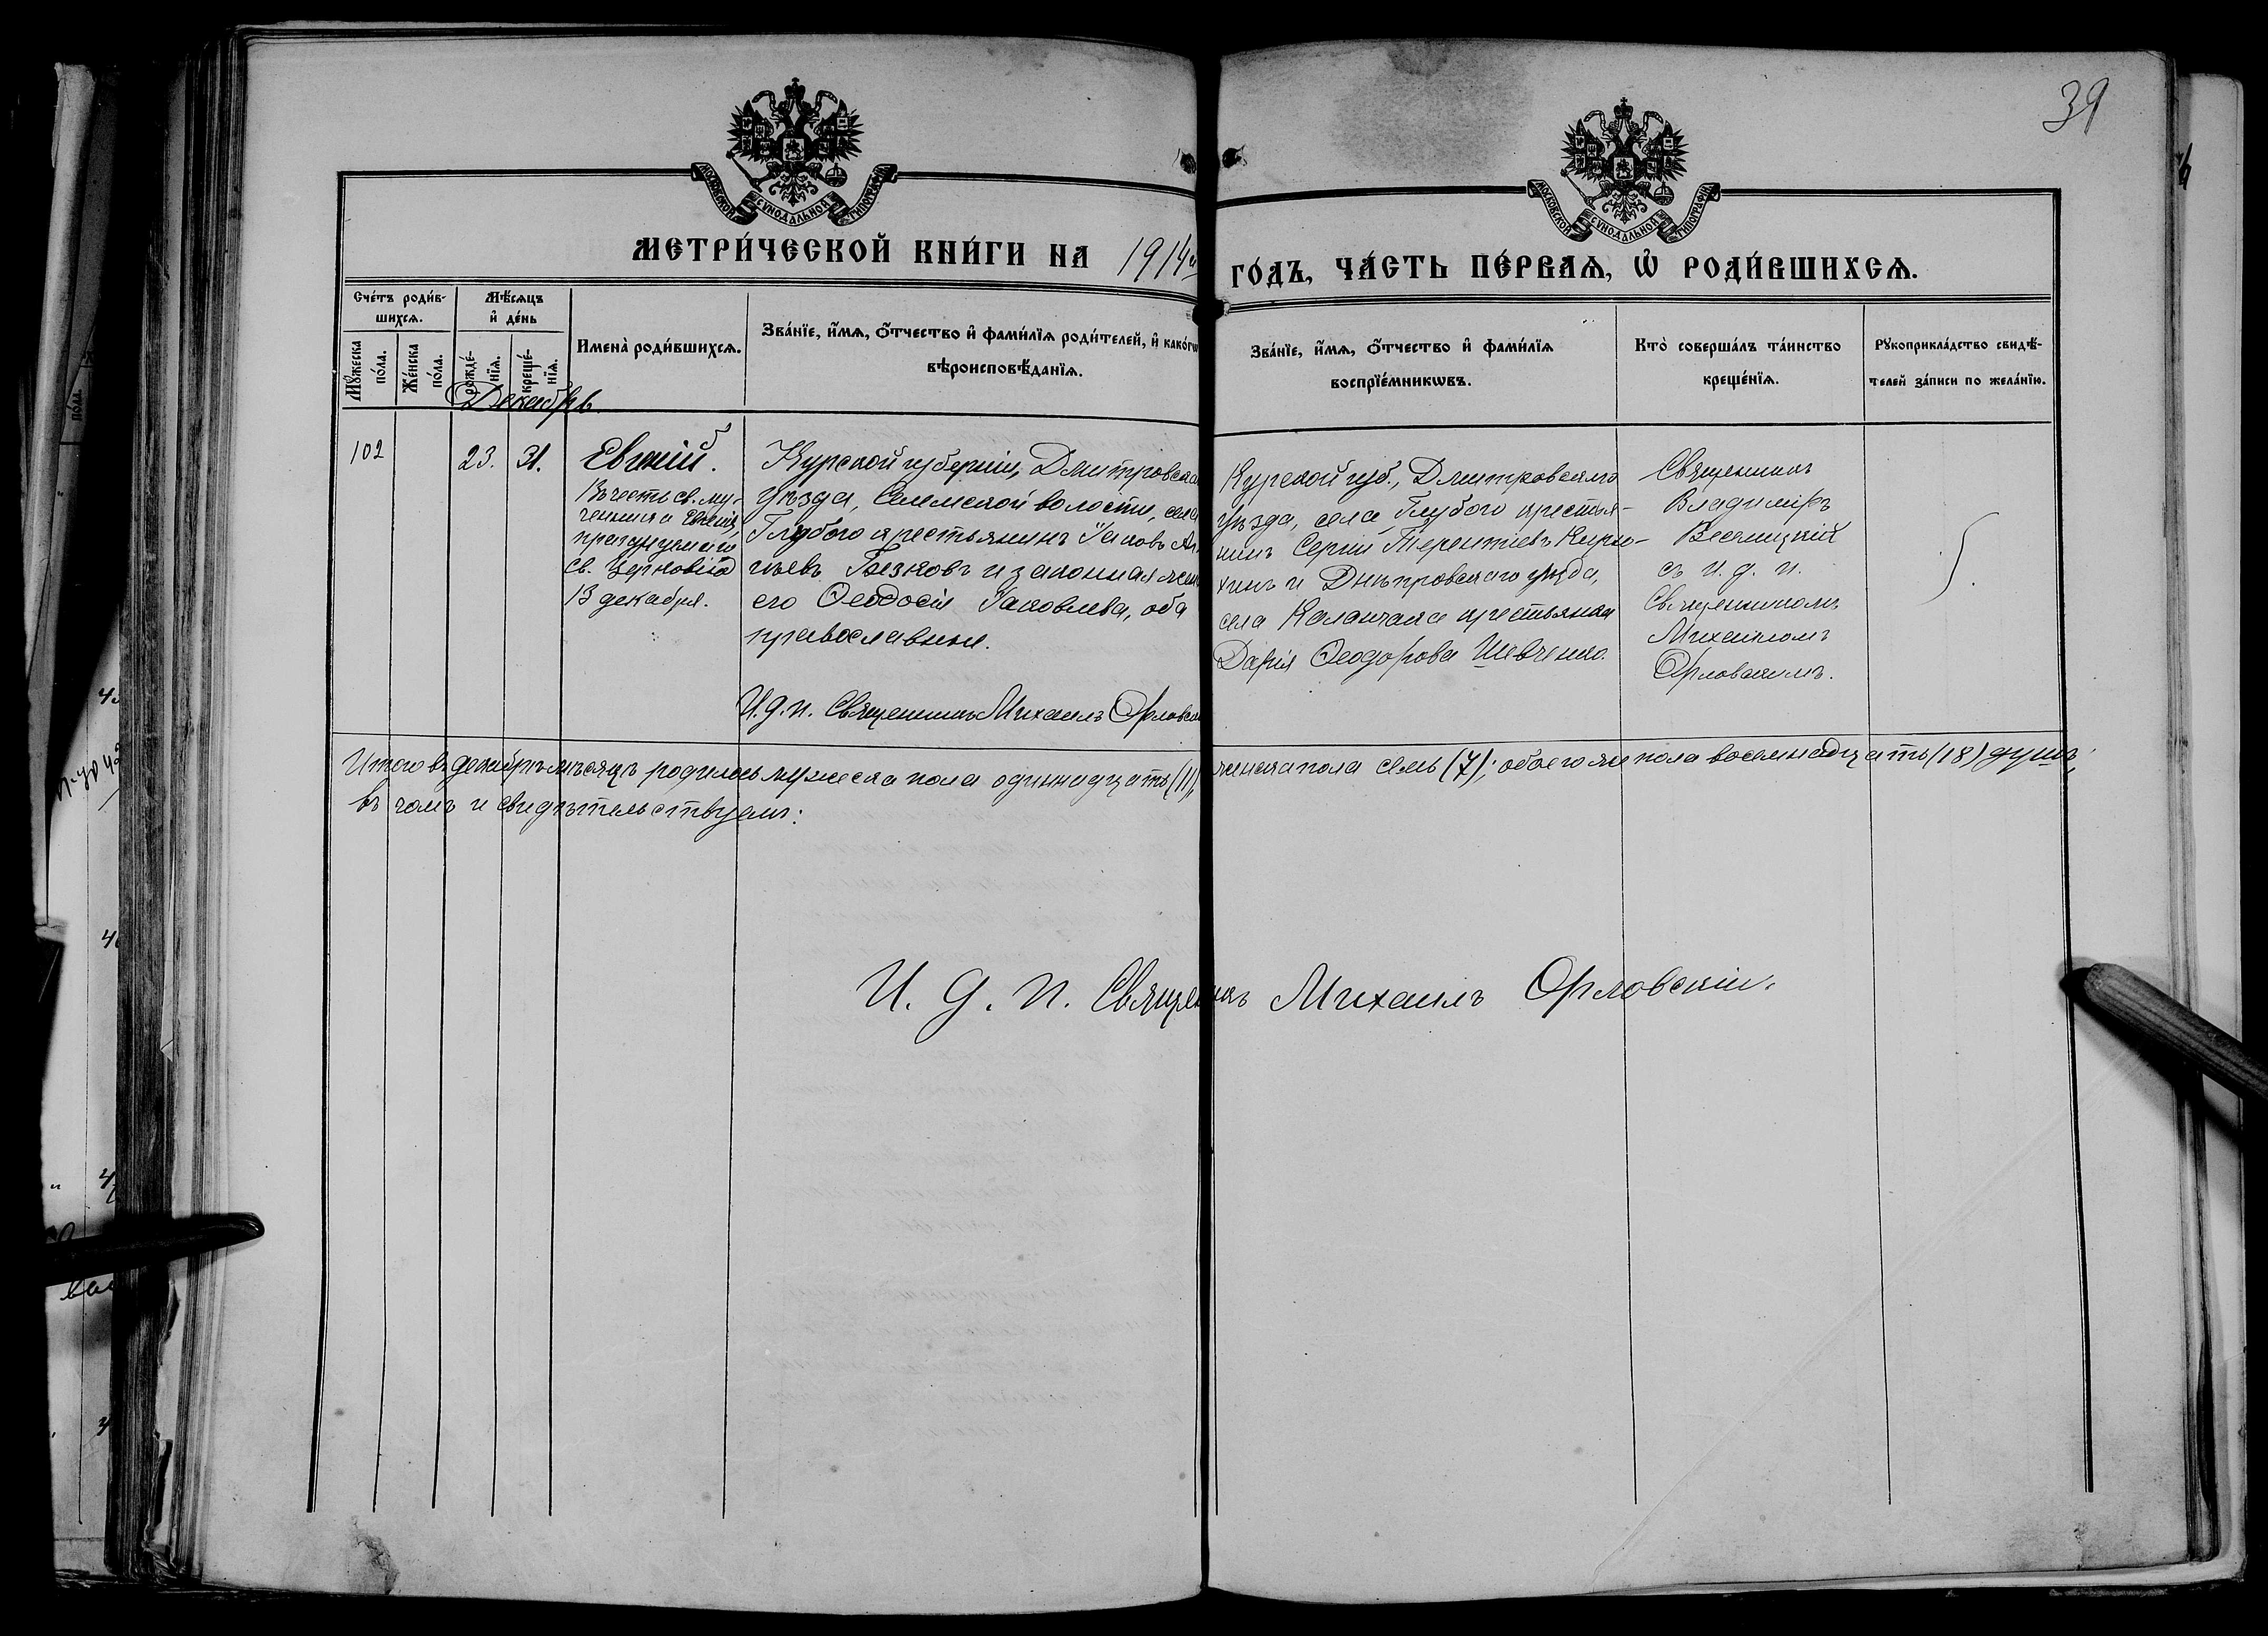 39
МОСКОВСКОЙ СѴНОДАЛЬНОЙ ТИПОГРАФІИ
МОСКОВСКОЙ СѴНОДАЛЬНОЙ ТИПОГРАФІИ
МЕТРИ́ЧЕСКОЙ КНИ́ГИ НА 1914й
ГО́ДЪ, ЧА́СТЬ ПЕ́РВАѦ, Ѡ҆ РОДИ́ВШИХСѦ.
Сче́тъ роди́в-
шихсѧ.
Мѣ́сѧцъ
и҆ де́нь
Мꙋ́жеска
по́ла.
Же́нска
по́ла.
рожде́-
нїѧ.
креще́-
нїѧ.
Имена̀ роди́вшихсѧ.
Зва́нїе, и҆́мѧ, ѻ҆́тчество и҆ фами́лїѧ роди́телей, и҆ како́гѡ
вѣроисповѣ́данїѧ.
Зва́нїе, и҆́мѧ, ѻ҆́тчество и҆ фами́лїѧ
воспрїе́мникѡвъ.
Кто̀ соверша́лъ та́инство
креще́нїѧ.
Рꙋкоприкла́дство свидѣ́-
телей за́писи по жела́нїю.
Декабрь.
102
23.
31.
Евгеній.
Въ честь св. му-
ченика Евгенія,
празднуемаго
св. Церковію
13 декабря.
Курской губерніи, Дмитровска
уѣзда, Селмской волости, села
Глубого крестьянинъ Іаковъ
Безковъ и законная жен
его Ѳеодосія Іаковлева, оба
православные.
И. д. п. Священникъ Михаилъ Орловск
Курской губ., Дмитровскаго
уѣзда, села Глубого крестья-
нинъ Сергій Терентіевъ Кирю-
хинъ и Днѣпровскаго уѣзда,
села Каланчака крестьянка
Дарія Ѳеодорова Шевченко.
Священникъ
Владиміръ
съ и. д. п.
Священникомъ
Михаиломъ
Орловскимъ.
Итого въ декабрѣ мѣсяцѣ родилось мужеска пола одиннадцать (11), женска пола семь (7); обоего же пола восемнадцать (18) душъ,
въ чемъ и свидѣтельствуемъ:
И. д. п. Священникъ Михаилъ Орловскій.